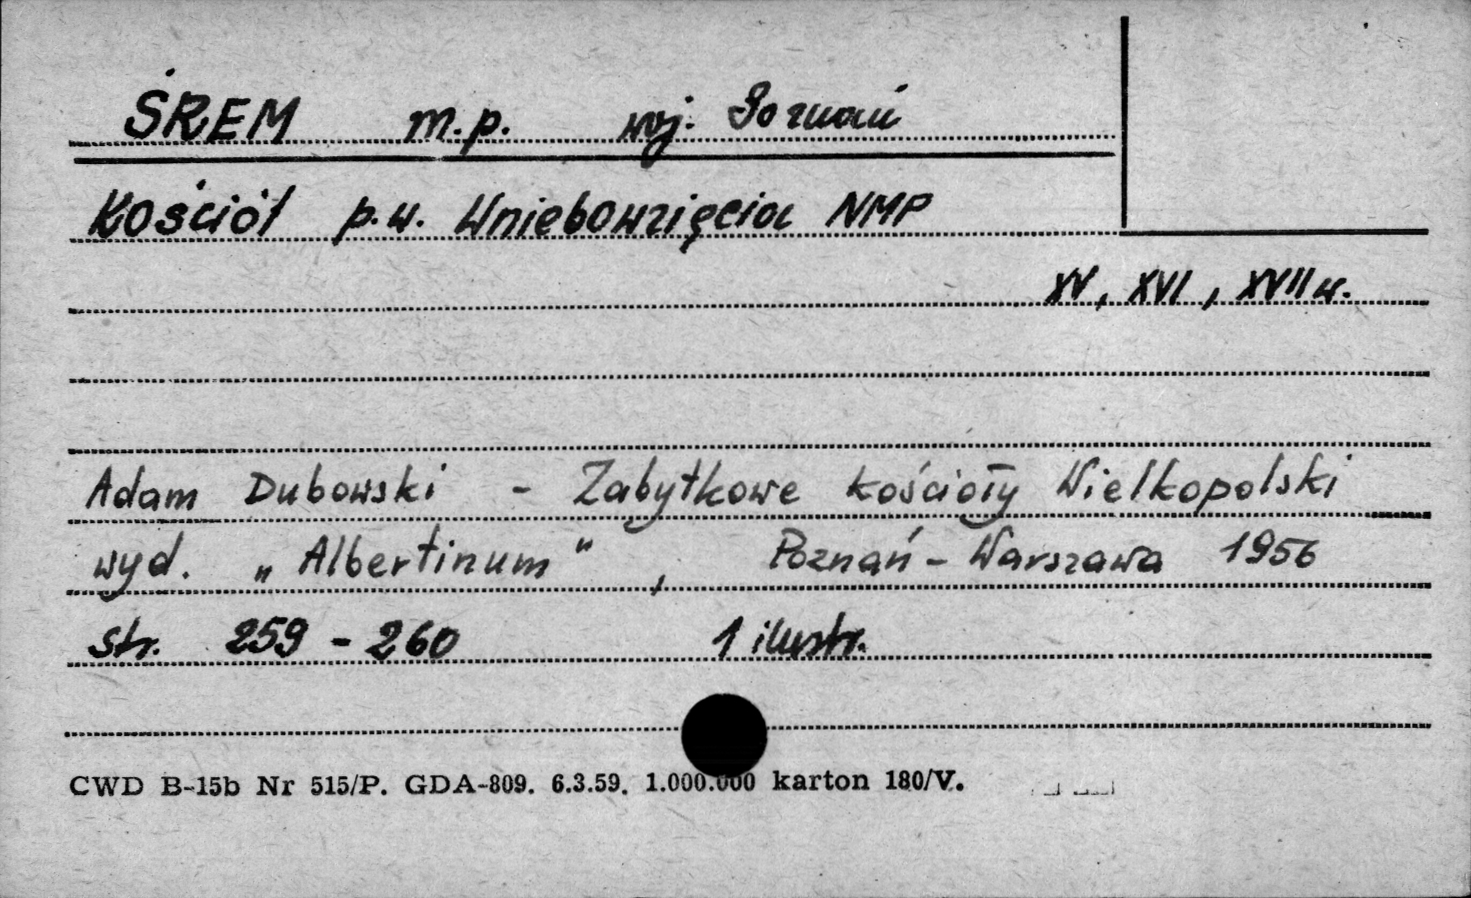 ŚREM m.p. woj. Poznań
Kościół p.w. Wniebowzięcia NMP
XV, XVI, XVII w.
Adam Dubowski - Zabytkowe kościoły Wielkopolski
wyd. „Albertinum", Poznań - Warszawa 1956
str. 259 - 260 1 ilustr.
CWD B-15b Nr 515/P. GDA-809. 6.3.59. 1.000.000 karton 180/V.